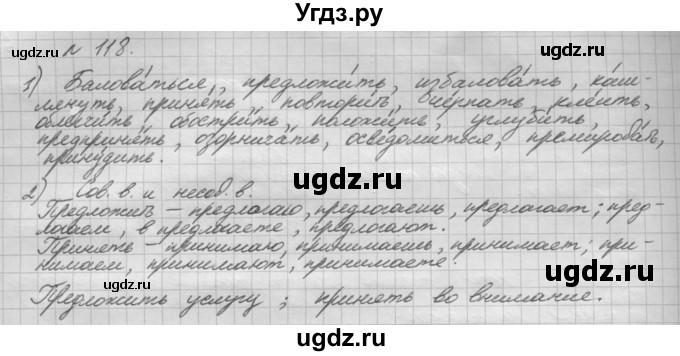 Угдз.ру
№ 118.
1) Балова́ться, предложи́ть, избалова́ть, ка́ш-
лянуть, приня́ть, повтори́ть, че́рпать, кле́ить,
облегчи́ть, обостри́ть, положи́ть, углуби́ть,
предприня́ть, озорнича́ть, осве́домиться, премирова́ть,
прину́дить.
2) Сов. в. и несов. в.
Предложить – предлагаю, предлагаешь, предлагает; пред-
лагаем, в предлагаете, предлагают.
Принять – принимаю, принимаешь, принимает; при-
нимаем, принимают, принимаете.
Предложить услугу ; принять во внимание.
ugdz.ru
ugdz.ru
ugdz.ru
ugdz.ru
ugdz.ru
ugdz.ru
ugdz.ru